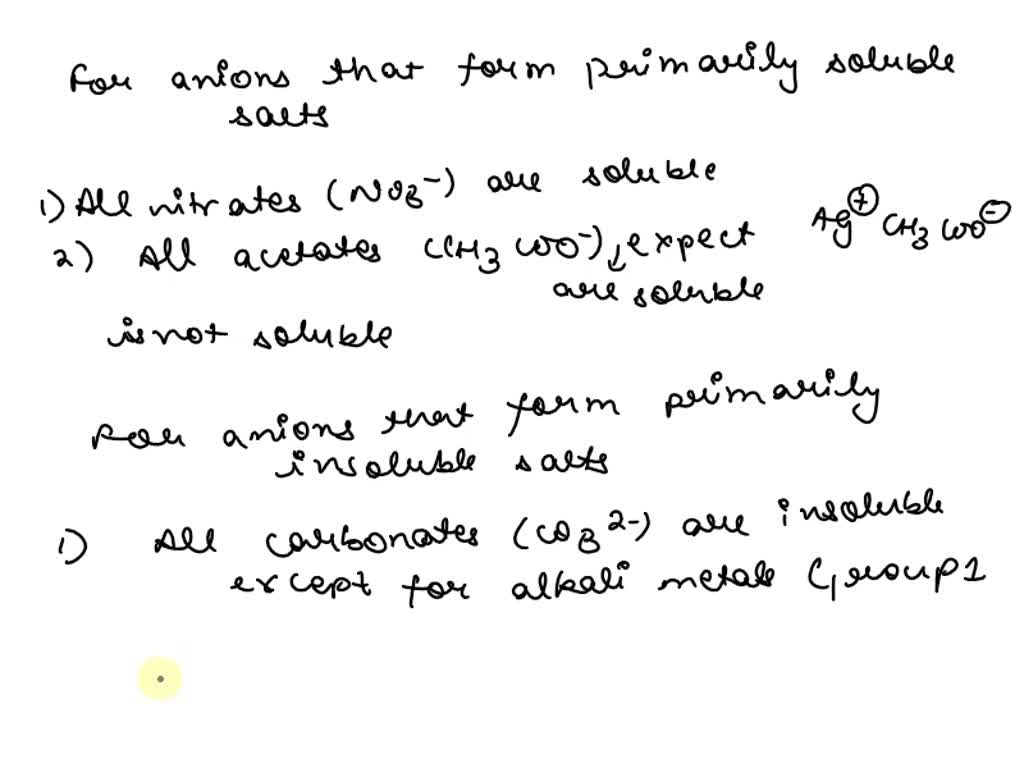 For anions that form primarily soluble
salts
1) All nitrates (NO3⁻) are soluble
2) All acetates (CH3COO⁻), expect Ag⁺ CH3COO⁻
are soluble
is not soluble
For anions that form primarily
insoluble salts
1) All carbonates (CO3²⁻) are insoluble
except for alkali metals Group 1